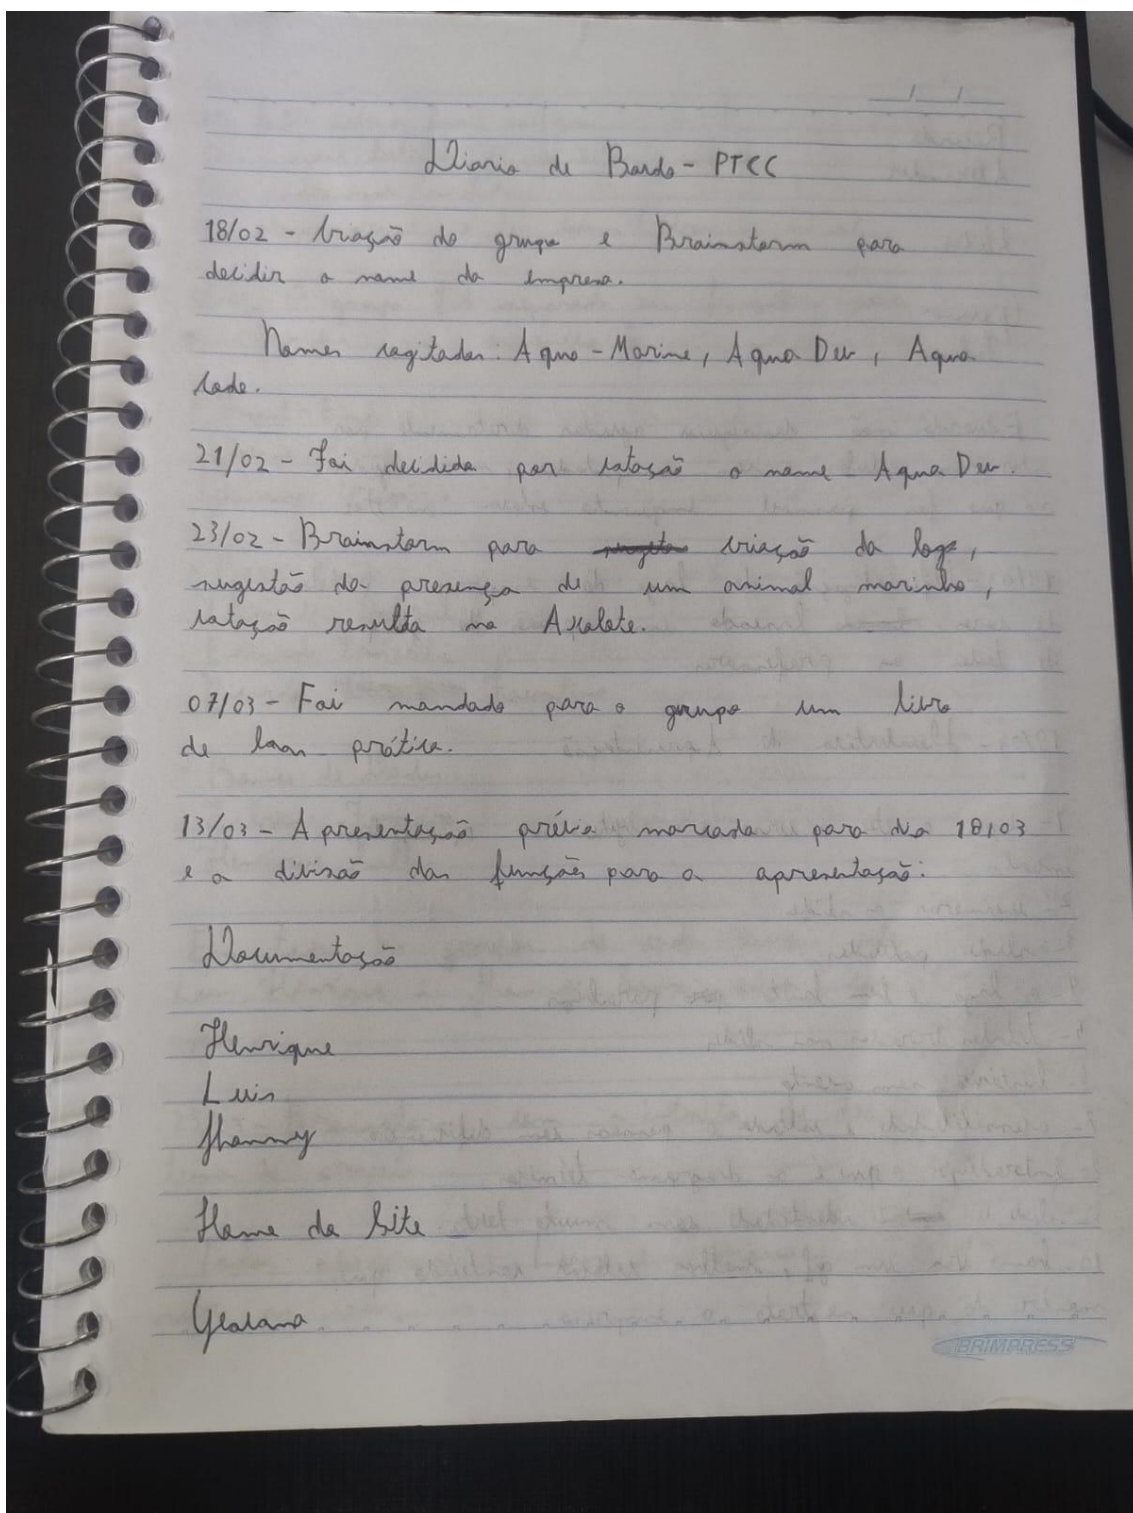 Diario de Bordo - PTCC
18/02 - Criação do grupo e Brainstorm para
decidir o nome da empresa.
Nomes cogitados: Aqua-Marine, Aqua Dev, Aqua
Code.
21/02 - Foi decidido por votação o nome Aqua Dev.
23/02 - Brainstorm para criação da logo,
sugestão da presença de um animal marinho,
votação resulta no Axolote.
07/03 - Foi mandado para o grupo um livro
de boas prática.
13/03 - Apresentação prévia marcada para dia 18/03
e a divisão das funções para a apresentação:
Documentação
Henrique
Luis
Jhonny
Home do Site
Geovana
BRIMPRESS